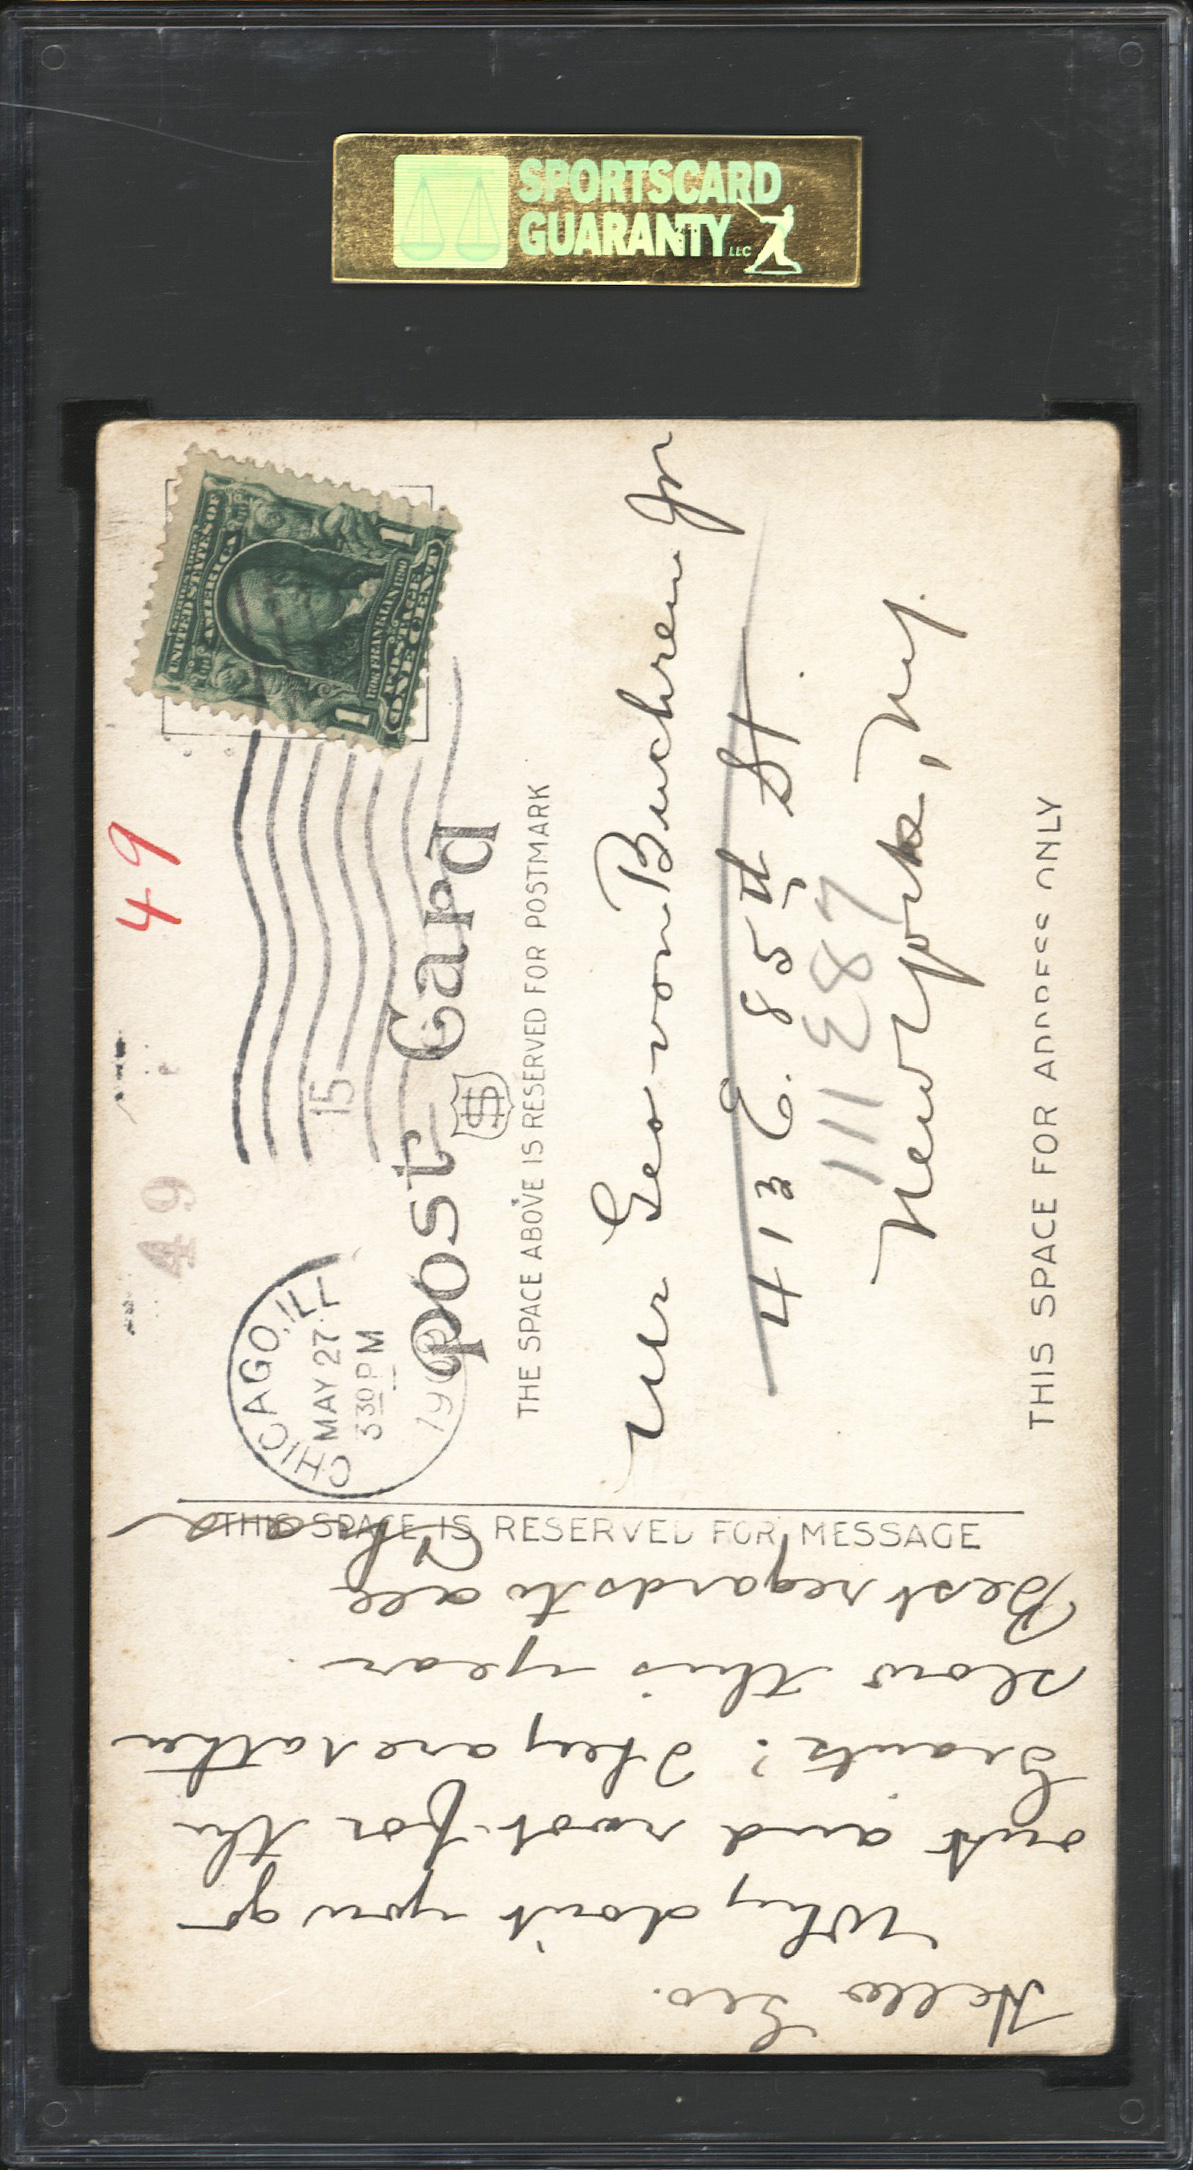 SPORTSCARD
GUARANTY LLC
SERIES 1902
UNITED STATES OF
AMERICA
1706 FRANKLIN 1790
POSTAGE
1 ONE CENT 1
49
49
CHICAGO, ILL
MAY 27
3 30 PM
190
15
Post Card
THE SPACE ABOVE IS RESERVED FOR POSTMARK
Mr Geo von Buchren Jr
413 E. 85th St.
111 E87
New York, N.Y.
THIS SPACE FOR ADDRESS ONLY
THIS SPACE IS RESERVED FOR MESSAGE
Hello Geo.
Why don't you go
out and root for the
Giants? They are rather
slow this year.
Best regards to all